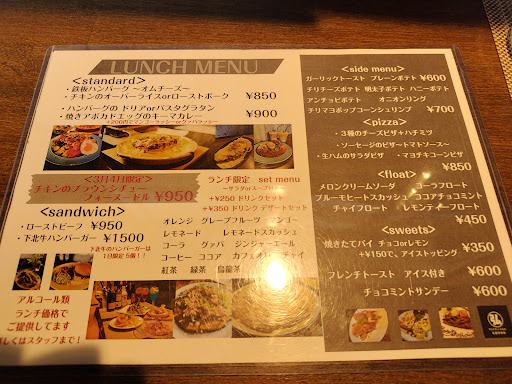 LUNCH MENU
<standard>
・鉄板ハンバーグ ~オムチーズ~
・チキンのオーバーライスorローストポーク ¥850
・ハンバーグの ドリアorパスタグラタン
・焼きアボカドエッグのキーマカレー ¥900
+200円でマンゴーラッシーorグァバラッシー
<3月4月限定>
チキンのブラウンシチュー
フォンヌードル ¥950
<sandwich>
・ローストビーフ ¥950
・下北牛ハンバーガー ¥1500
下北牛のハンバーガーは
1日限定5個!!
アルコール類
ランチ価格で
ご提供してます
しくはスタッフまで!
ランチ限定 set menu
~サラダorスープ付
+¥250 ドリンクセット
+¥350 ドリンクデザートセット
オレンジ グレープフルーツ マンゴー
レモネード レモネードスカッシュ
コーラ グァバ ジンジャーエール
コーヒー ココア カフェオレ チャイ
紅茶 緑茶 烏龍茶
<side menu>
ガーリックトースト プレーンポテト ¥600
チリチーズポテト 明太子ポテト ハニーポテト
アンチョビポテト オニオンリング
チリマヨポップコーンシュリンプ ¥700
<pizza>
・3種のチーズピザ+ハチミツ
・ソーセージのピザ~トマトソース~
・生ハムのサラダピザ ・マヨチキコーンピザ
¥850
<float>
メロンクリームソーダ コーラフロート
ブルーモヒートスカッシュ ココアチョコミント
チャイフロート レモンスカッシュフロート
¥450
<sweets>
焼きたてパイ チョコorレモン ¥350
+¥150で、アイストッピング
フレンチトースト アイス付き ¥600
チョコミントサンデー ¥600